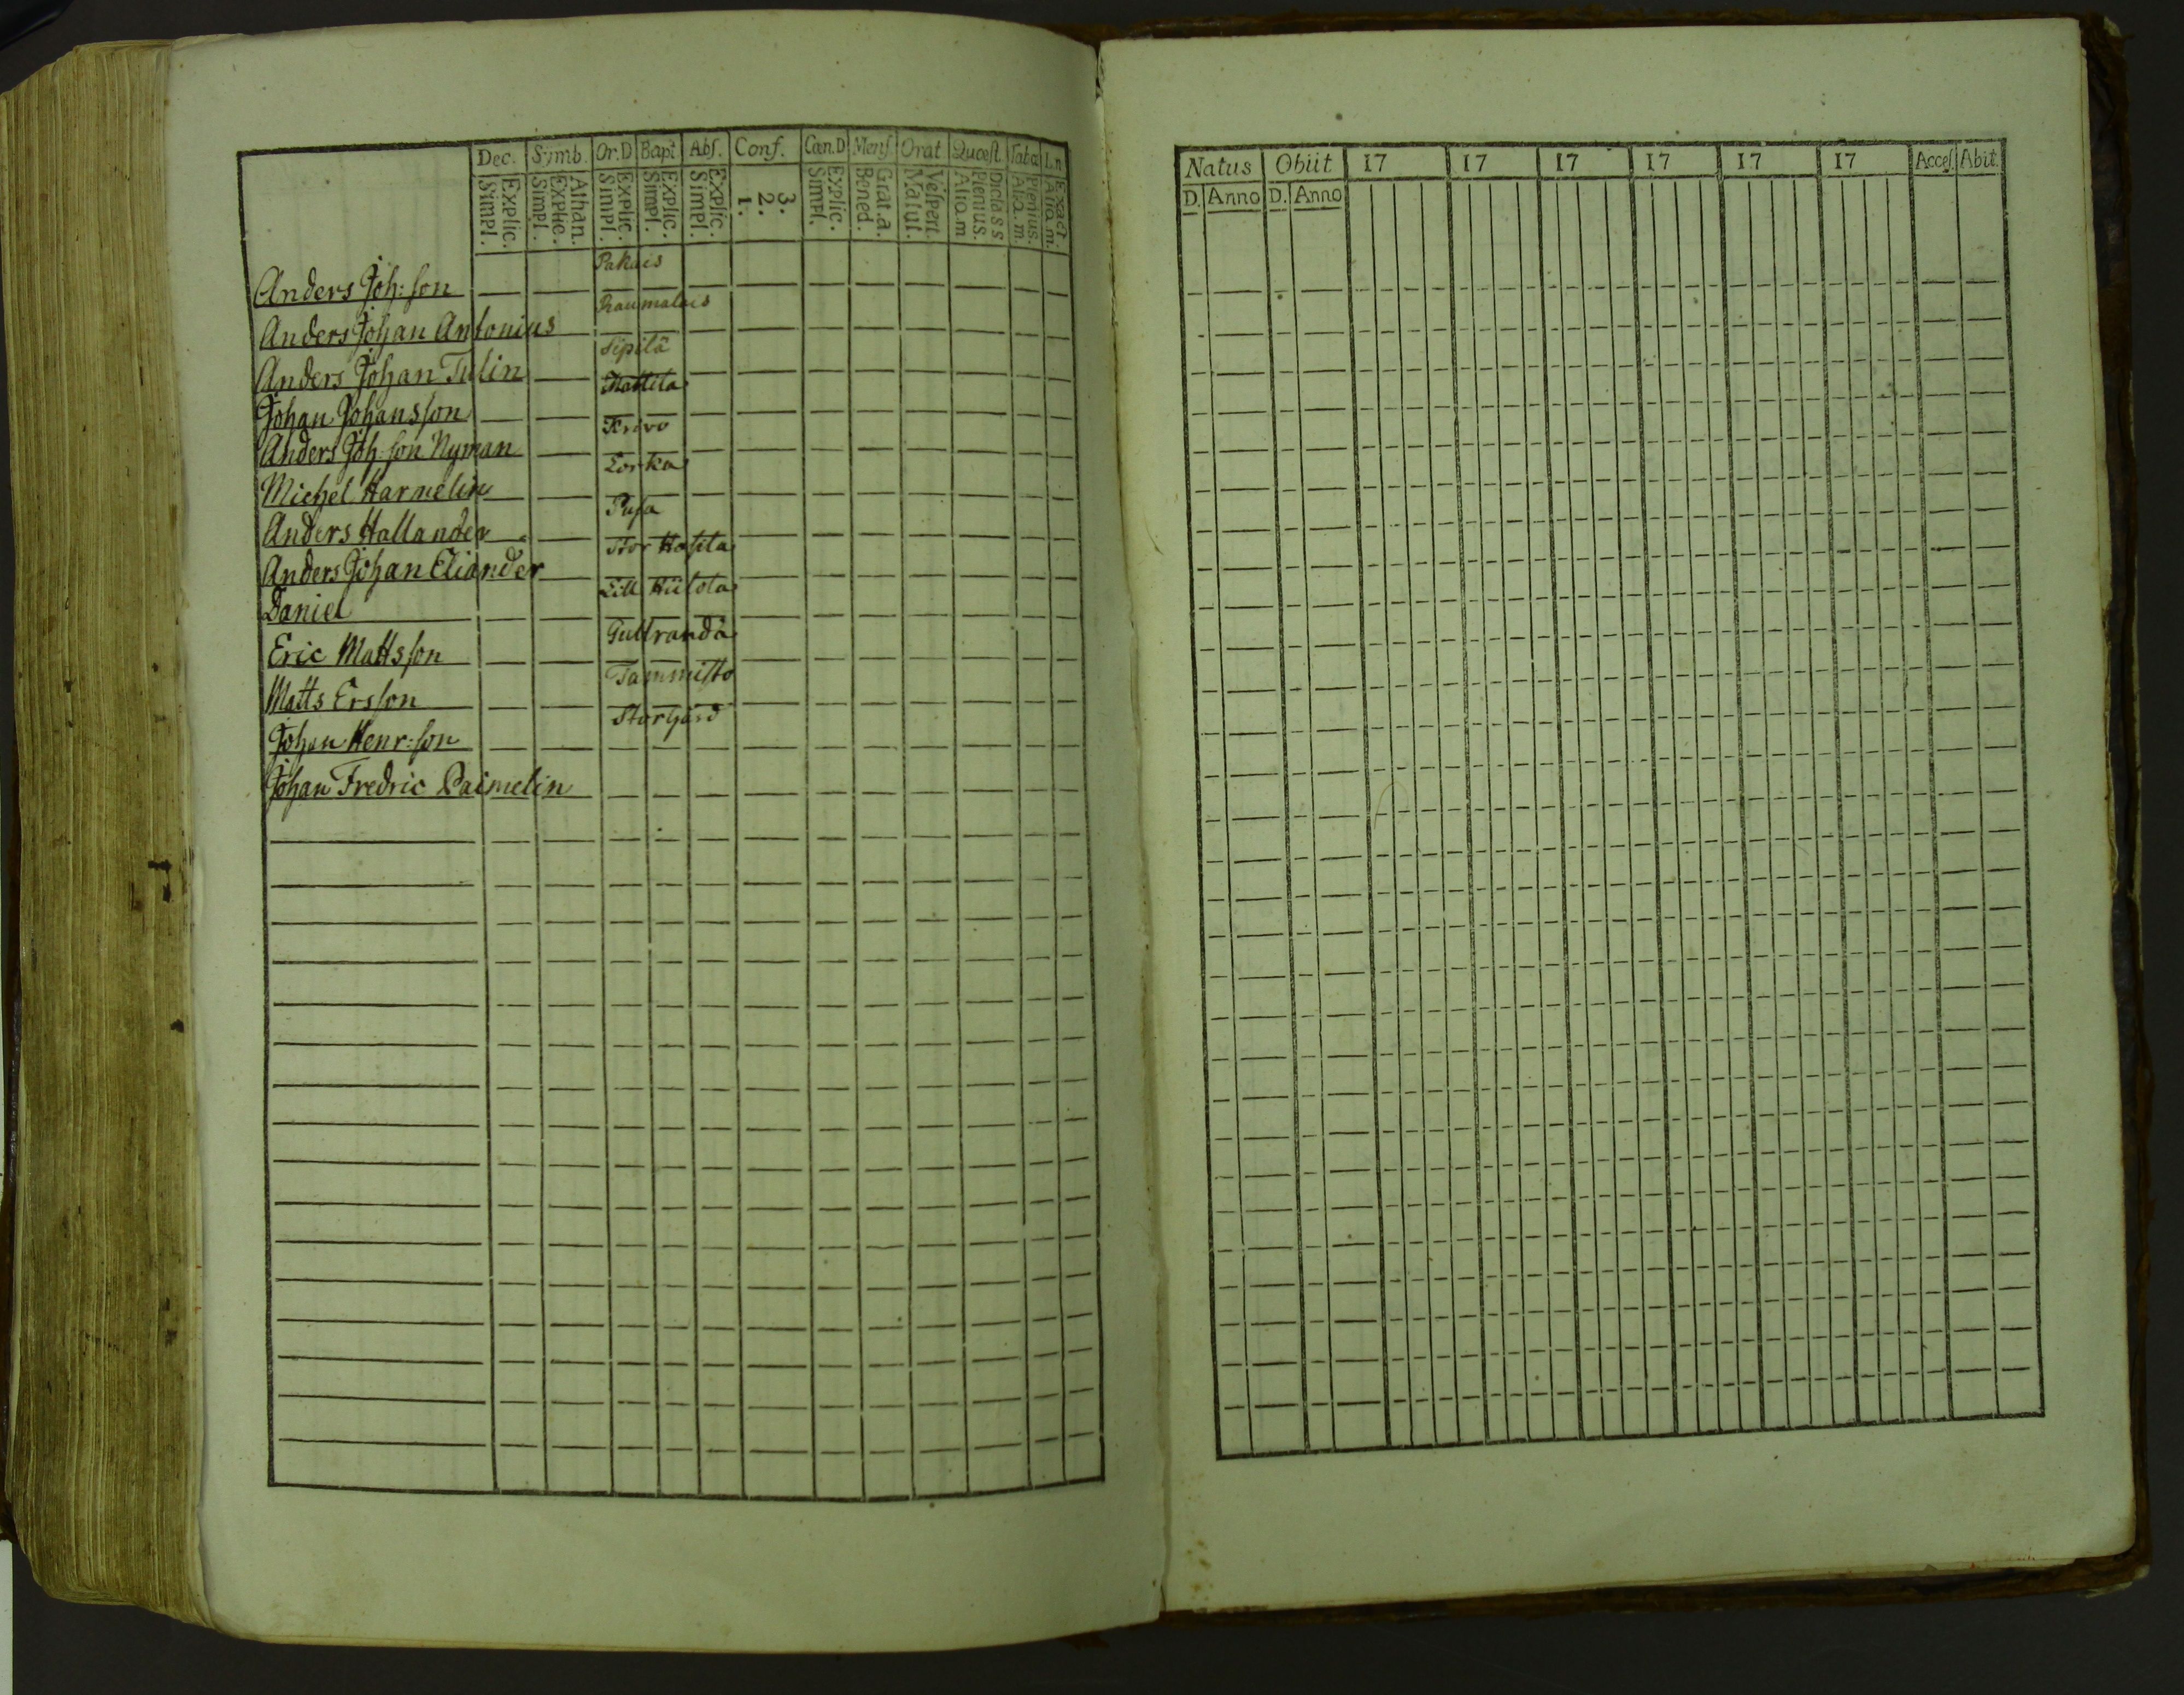 Dec. Symb. Or.D Bapt Abs. Conf. Cæn.D Mens. Orat Quæst Taba
Explic. Simpl. Athan. Explic. Simpl. Explic. Simpl. Explic. Simpl. Explic. Simpl. 3. 2. 1. Explic. Simpl. Grat.a. Bened. Vespert. Matut. Plenius. Aliq.m. Plenius. Aliq.m. Exact. Aliq.m.
Anders Joh:son Pakais
Anders Johan Antonius Raumalais
Anders Johan Tulin Sipilä
Johan Johansson Mattila
Anders Joh:son Nyman Krivo
Michel Harnelin Lorka
Anders Hallander
Anders Johan Eliander
Daniel Lill Hiitola
Eric Mattsson Gullranda
Matts Ersson Tammisto
Johan Henr:son Storgård
Johan Fredric Paimelin
Natus Obiit 17 17 17 17 17 17 Acces. Abit.
D. Anno D. Anno